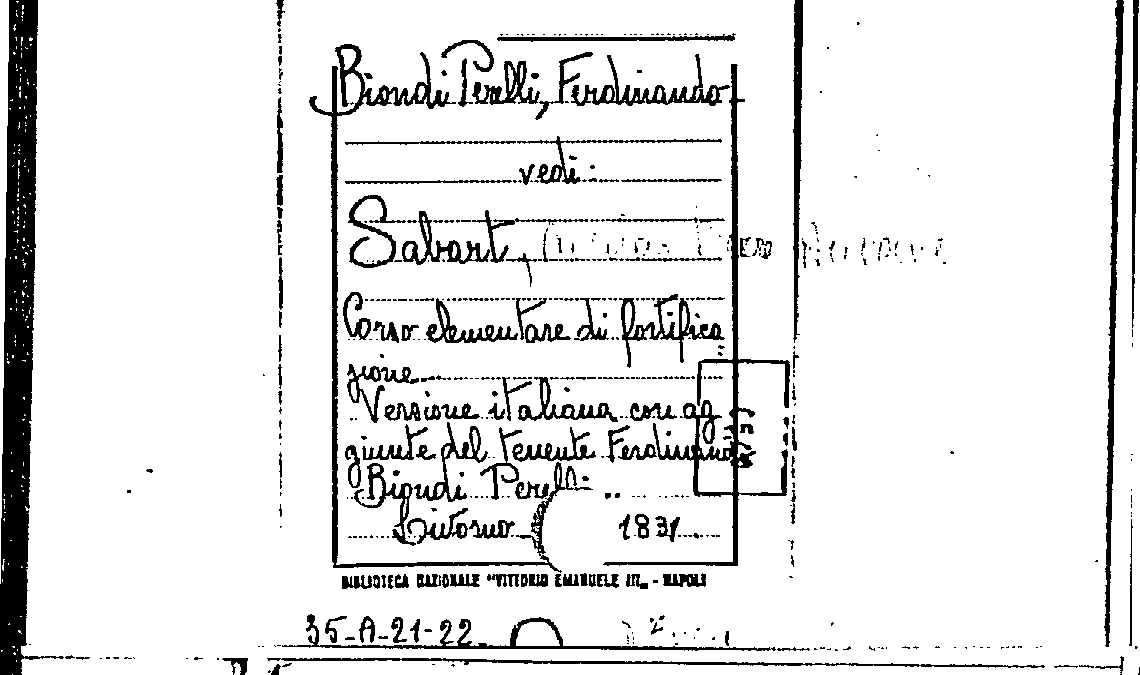 Biondi Perelli, Ferdinando
vedi:
Sabart,
Corso elementare di fortifica
zione...
Versione italiana con ag
giunte del tenente Ferdinando
Biondi Perelli ..
Livorno 1831
BIBLIOTECA NAZIONALE "VITTORIO EMANUELE III„ - NAPOLI
35-A-21-22